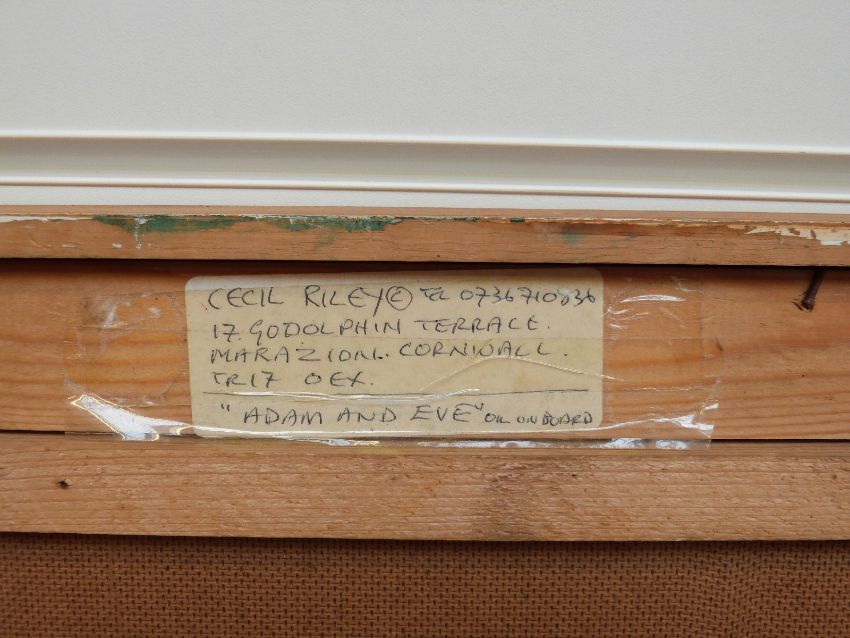 CECIL RILEY © TEL 0736710836
17. GODOLPHIN TERRACE.
MARAZION. CORNWALL.
TR17 0EX.
"ADAM AND EVE" OIL ON BOARD